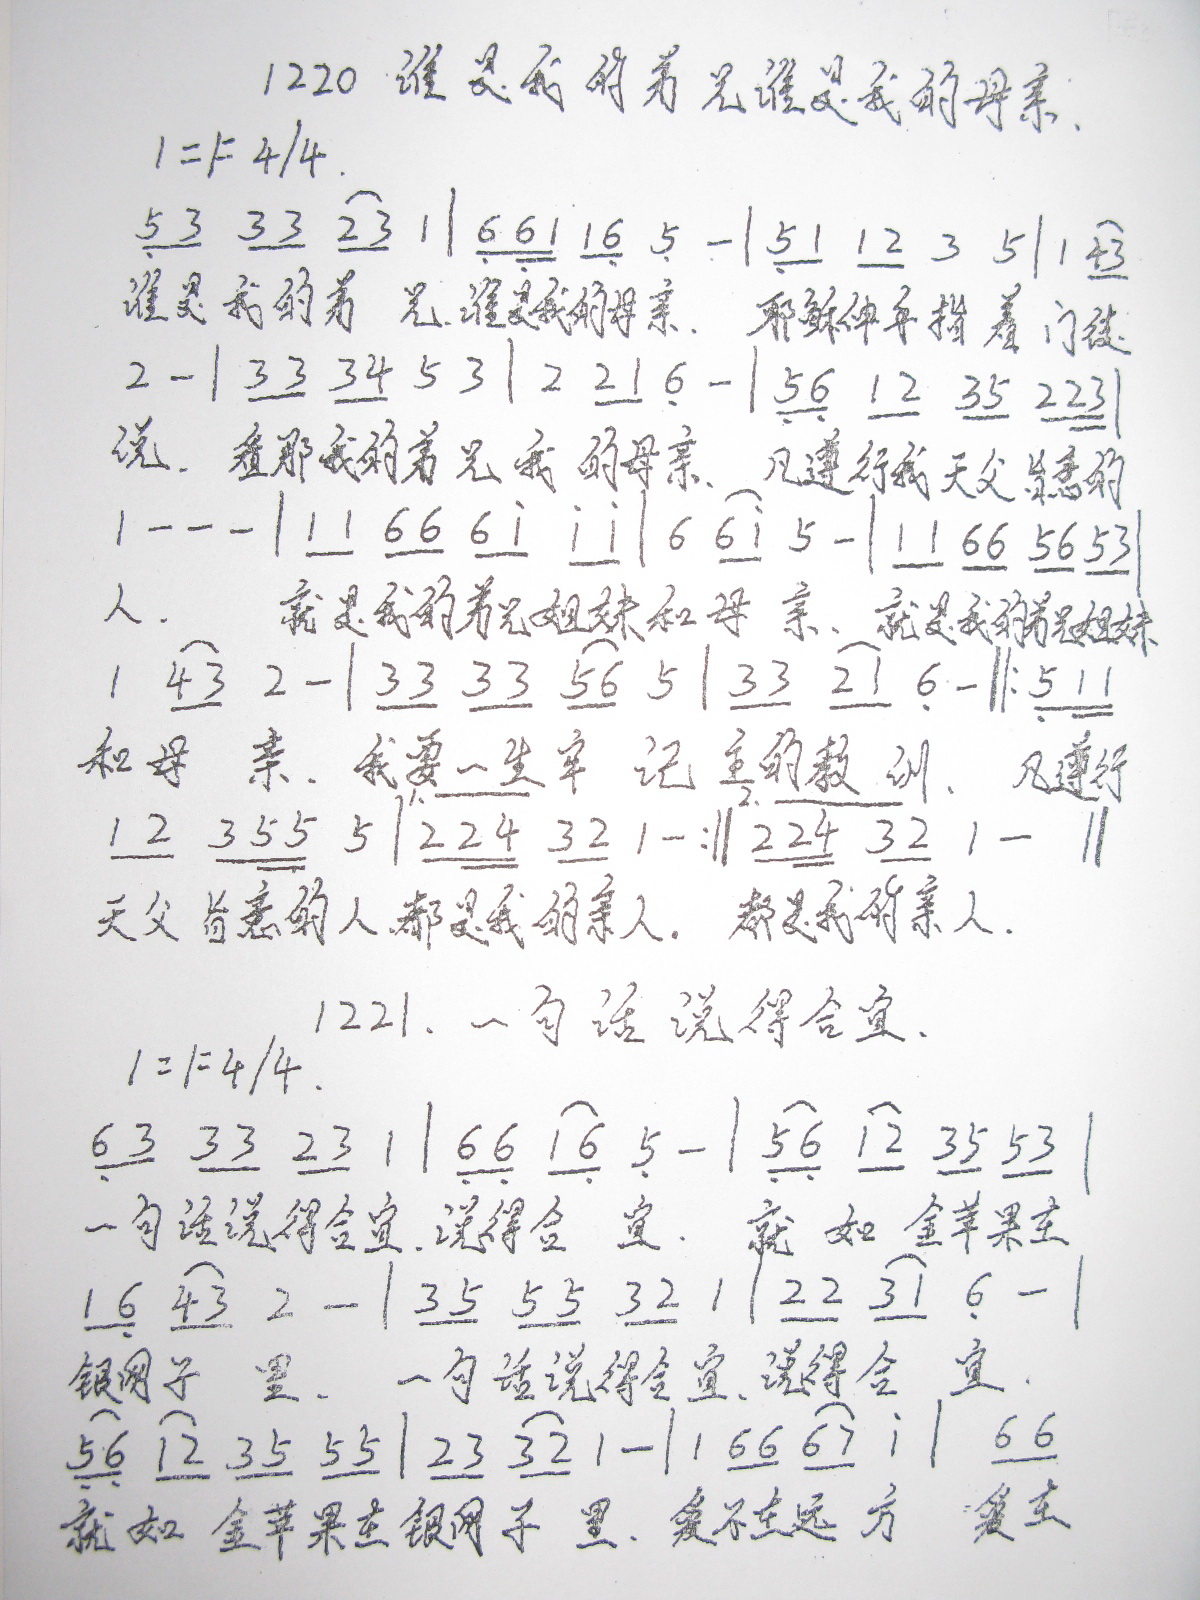 1220 谁是我的弟兄谁是我的母亲.
1=F 4/4.
53 33 23 1 | 6 61 16 5 - | 51 12 3 5 | 1 43
谁是我的弟 兄.谁是我的母亲. 耶稣伸手指着门徒
2 - | 33 34 5 3 | 2 21 6 - | 56 12 35 223 |
说. 看那我的弟兄我的母亲. 凡遵行我天父旨意的
1 - - - | 11 66 6i ii | 6 6i 5 - | 11 66 56 53 |
人. 就是我的弟兄姐妹和母亲. 就是我的弟兄姐妹
1 43 2 - | 33 33 56 5 | 33 21 6 - ‖: 511
和母 亲. 我要一生牢 记 主的教 训. 凡遵行
12 355 5 | 1. 224 32 1 - :‖ 2. 224 32 1 - ‖
天父旨意的人都是我的亲人. 都是我的亲人.
1221. 一句话说得合宜.
1=F 4/4.
63 33 23 1 | 66 16 5 - | 56 12 35 53 |
一句话说得合宜.说得合 宜. 就 如 金苹果在
16 43 2 - | 35 55 32 1 | 22 31 6 - |
银网子 里. 一句话说得合宜.说得合 宜.
56 12 35 55 | 23 32 1 - | 1 66 67 i | 66
就如 金苹果在银网子 里. 爱不在远 方 爱在